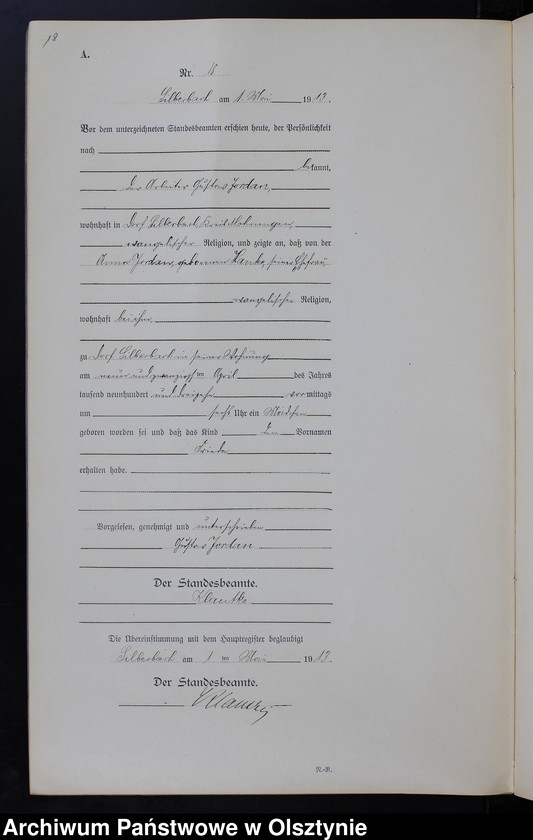 18
A.
Nr. 18
Silberbach am 1. Mai 1913.
Vor dem unterzeichneten Standesbeamten erschien heute, der Persönlichkeit
nach
bekannt,
der Arbeiter Gustav Jordan,
wohnhaft in Dorf Silberbach Kreis Mohrungen,
evangelischer Religion, und zeigte an, daß von der
Anna Jordan, geborenen Hanke, seiner Ehefrau
evangelischer Religion,
wohnhaft bei ihm,
zu Dorf Silberbach in seiner Wohnung
am neunundzwanzigsten April des Jahres
tausend neunhundert und dreizehn vormittags
um sechs Uhr ein Mädchen
geboren worden sei und daß das Kind den Vornamen
Frieda
erhalten habe.
Vorgelesen, genehmigt und unterschrieben
Gustav Jordan
Der Standesbeamte.
Die Übereinstimmung mit dem Hauptregister beglaubigt
Silberbach am 1 ten Mai 1913.
Der Standesbeamte.
N.-R.
Archiwum Państwowe w Olsztynie